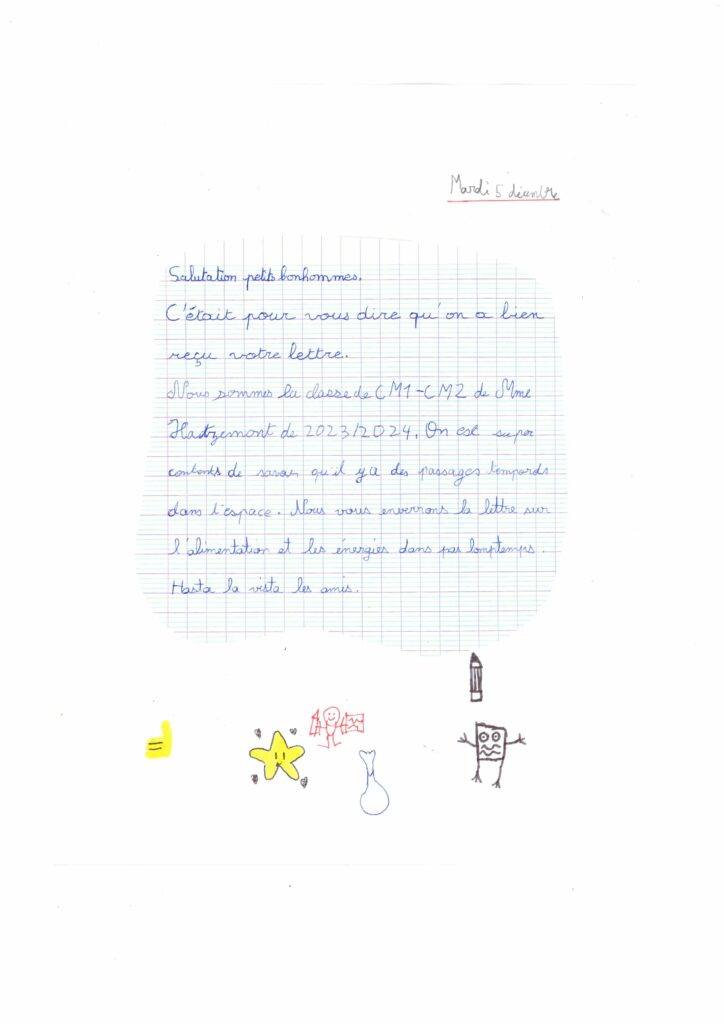 Mardi 5 décembre
Salutation petits bonhommes.
C'était pour vous dire qu'on a bien
reçu votre lettre.
Nous sommes la classe de CM1-CM2 de Mme
de 2023/2024. On est super
contents de savoir qu'il y a des passages temporels
dans l'espace. Nous vous enverrons la lettre sur
l'alimentation et les énergies dans pas lomptemps.
Hasta la vista les amis.